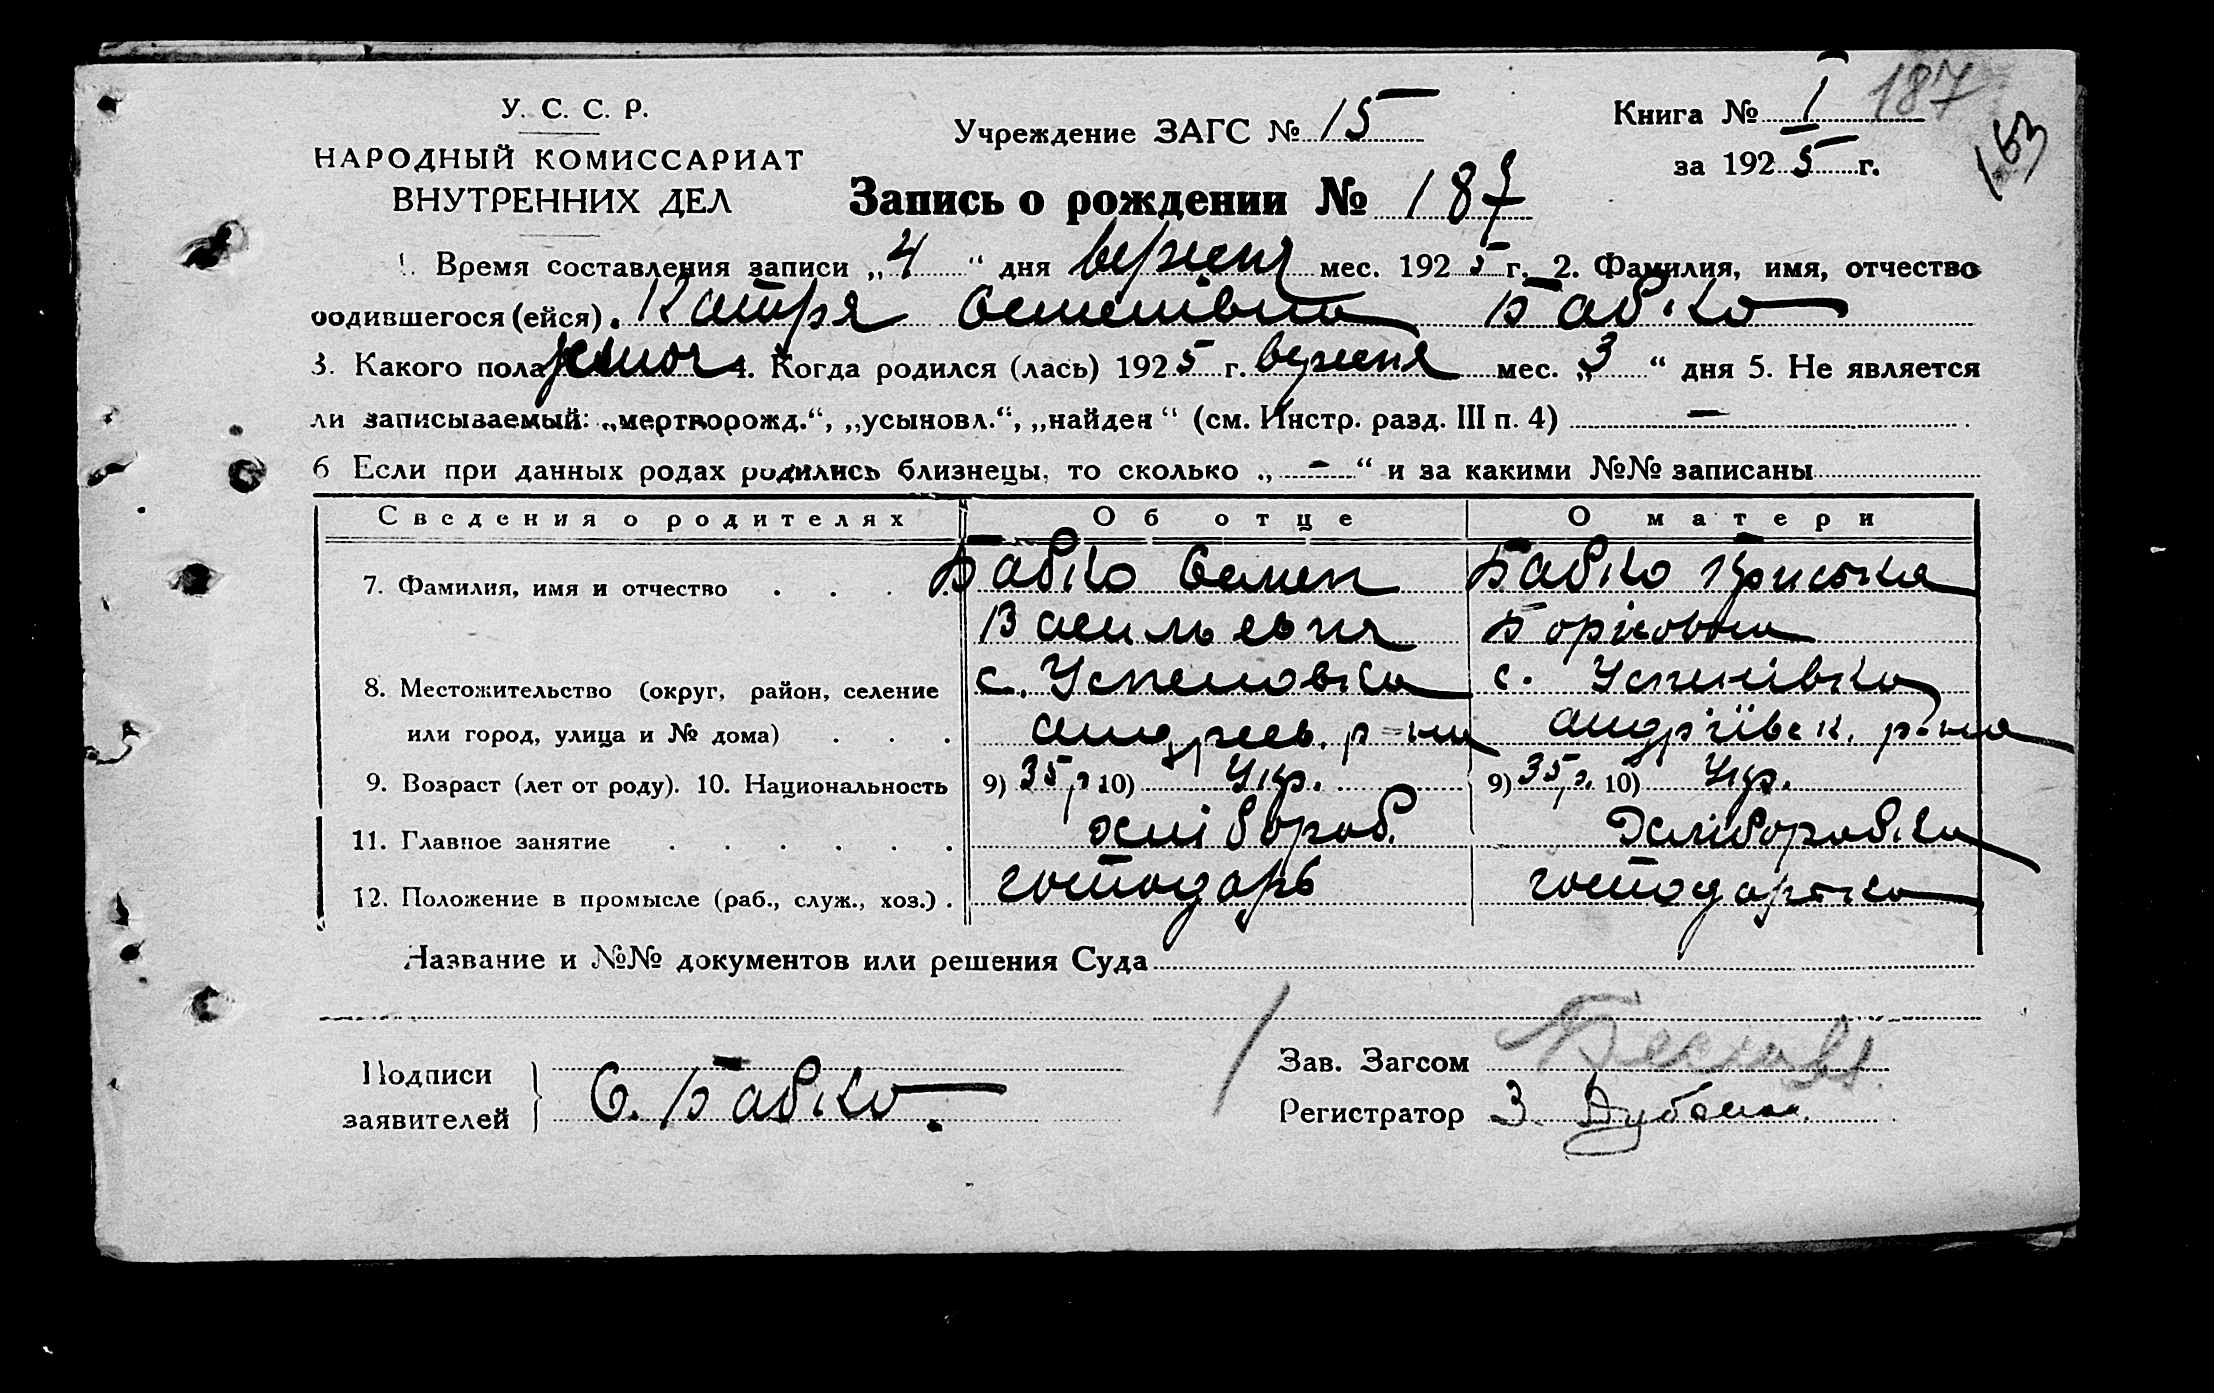 У. С. С. Р.
НАРОДНЫЙ КОМИССАРИАТ
ВНУТРЕННИХ ДЕЛ
Учреждение ЗАГС № 15
Книга № I 187
за 1925 г.
163
Запись о рождении № 187
1. Время составления записи „4“ дня вересня мес. 1925 г. 2. Фамилия, имя, отчество
родившегося (ейся). Катря Семенівна Бабко
3. Какого пола жіноч 4. Когда родился (лась) 1925 г. вересня мес. „3“ дня 5. Не является
ли записываемый: „мертворожд.“, „усыновл.“, „найден“ (см. Инстр. разд. III п. 4) —
6 Если при данных родах родились близнецы, то сколько „-“ и за какими №№ записаны
Сведения о родителях Об отце О матери
7. Фамилия, имя и отчество Бабко Семен Бабко Пріська
Васильевич Борісовна
8. Местожительство (округ, район, селение с. Успеновка с. Успенівка
или город, улица и № дома) андреев. р-на андріївск. р-на
9. Возраст (лет от роду). 10. Национальность 9) 35 р 10) Укр. 9) 35 р. 10) Укр.
11. Главное занятие хлібороб. Хліборобка
12. Положение в промысле (раб., служ., хоз.) господарь господарька
Название и №№ документов или решения Суда
Подписи
заявителей
С. Бабко.
Зав. Загсом
Регистратор З.